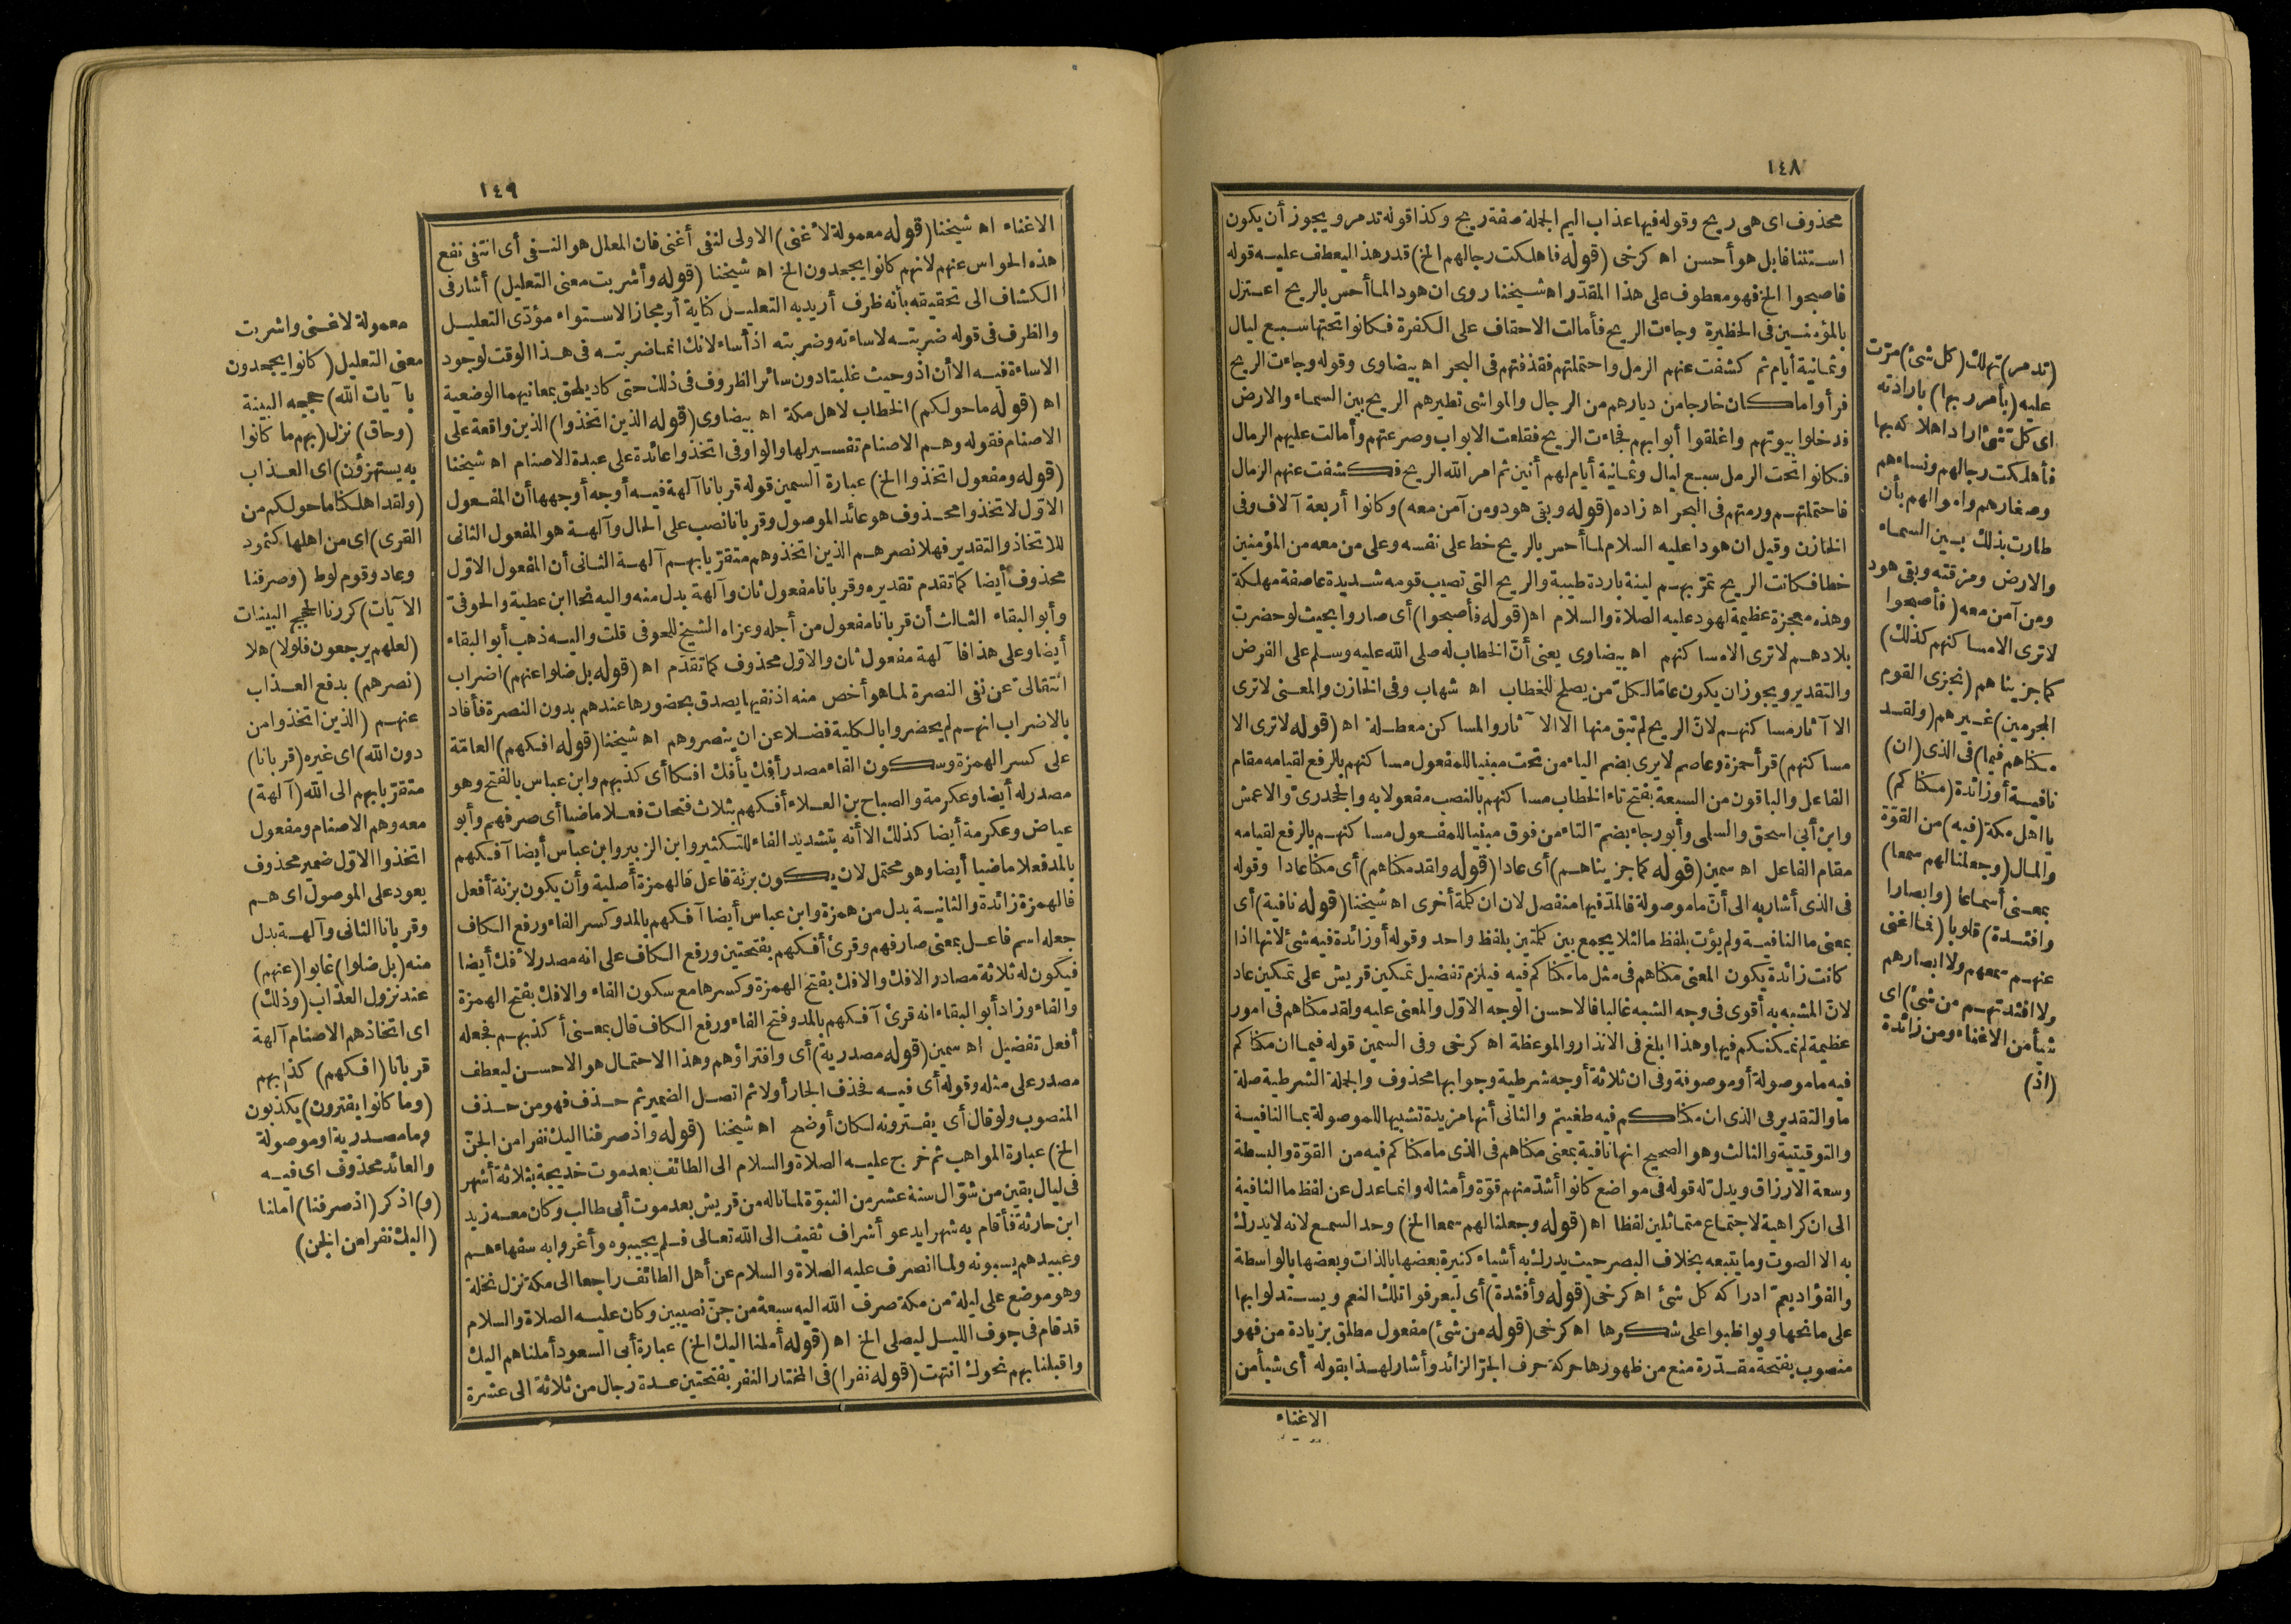 ١٤٨
محذوف اى هى ريح وقوله فيها عذاب اليم الجملة صفة ريح وكذا قوله تدمر ويجوز أن يكون
استئنافا بل هو أحسن اه كرخى (قوله فاهلكت رجالهم الخ) قدر هذا ليعطف عليه قوله
فاصبحوا الخ فهو معطوف على هذا المقدّر اه شيخنا روى ان هودا لما أحس بالريح اعتزل
بالمؤمنين فى الحظيرة وجاءت الريح فأمالت الاحقاف على الكفرة فكانوا تحتها سبع ليال
وثمانية أيام ثم كشفت عنهم الرمل واحتملتهم فقذفتهم فى البحر اه بيضاوى وقوله وجاءت الريح
فرأوا ما كان خارجا من ديارهم من الرجال والمواشى تطيرهم الريح بين السماء والارض
فدخلوا بيوتهم واغلقوا أبوابهم فجاءت الريح فقلعت الابواب وصرعتهم وأمالت عليهم الرمال
فكانوا تحت الرمل سبع ليال وثمانية أيام لهم أنين ثم امر الله الريح فكشفت عنهم الرمال
فاحتملتهم ورمتهم فى البحر اه زاده (قوله وبقى هود ومن آمن معه) وكانوا أربعة آلاف وفى
الخازن وقيل ان هودا عليه السلام لما أحس بالريح خط على نفسه وعلى من معه من المؤمنين
خطا فكانت الريح تمرّ بهم لينة باردة طيبة والريح التى تصيب قومه شديدة عاصفة مهلكة
وهذه معجزة عظيمة لهود عليه الصلاة والسلام اه (قوله فأصبحوا) أى صاروا بحيث لو حضرت
بلادهم لا ترى الا مساكنهم اه بيضاوى يعنى أنّ الخطاب له صلى الله عليه وسلم على الفرض
والتقدير ويجوز ان يكون عامّا لكلّ من يصلح للخطاب اه شهاب وفى الخازن والمعنى لا ترى
الا آثار مساكنهم لانّ الريح لم تبق منها الا الآثار والمساكن معطلة اه (قوله لا ترى الا
مساكنهم) قرأ حمزة وعاصم لا يرى بضم الياء من تحت مبنيا للمفعول مساكنهم بالرفع لقيامه مقام
الفاعل والباقون من السبعة بفتح تاء الخطاب مساكنهم بالنصب مفعولا به والجحدرىّ والاعمش
وابن أبى اسحق والسلمى وأبو رجاء بضمّ التاء من فوق مبنيا للمفعول مساكنهم بالرفع لقيامه
مقام الفاعل اه سمين (قوله كما جزيناهم) أى عادا (قوله ولقد مكناهم) أى مكنا عادا وقوله
فى الذى أشار به الى أنّ ما موصولة فالمدّ فيها منفصل لان ان كلمة أخرى اه شيخنا (قوله نافية) أى
بمعنى ما النافية ولم يؤت بلفظ ما لئلا يجمع بين كلمتين بلفظ واحد وقوله أو زائدة فيه شئ لانها اذا
كانت زائدة يكون المعنى مكناهم فى مثل ما مكناكم فيه فيلزم تفضيل تمكين قريش على تمكين عاد
لانّ المشبه به أقوى فى وجه الشبه غالبا فالاحسن الوجه الاوّل والمعنى عليه ولقد مكناهم فى امور
عظيمة لم نمكنكم فيها وهذا ابلغ فى الانذار والموعظة اه كرخى وفى السمين قوله فيما ان مكناكم
فيه ما موصولة أو موصوفة وفى ان ثلاثة أوجه شرطية وجوابها محذوف والجملة الشرطية صلة
ما والتقدير فى الذى ان مكناكم فيه طغيتم والثانى أنها مزيدة تشبيها للموصولة بما النافية
والتوقيتية والثالث وهو الصحيح انها نافية بمعنى مكناهم فى الذى ما مكناكم فيه من القوّة والبسطة
وسعة الارزاق ويدلّ له قوله فى مواضع كانوا أشدّ منهم قوّة وأمثاله وانما عدل عن لفظ ما النافية
الى ان كراهية لاجتماع متماثلين لفظا اه (قوله وجعلنا لهم سمعا الخ) وحد السمع لانه لا يدرك
به الا الصوت وما يتبعه بخلاف البصر حيث يدرك به أشياء كثيرة بعضها بالذات وبعضها بالواسطة
والفؤاد يعمّ ادراكه كل شئ اه كرخى (قوله وأفئدة) أى ليعرفوا تلك النعم ويستدلوا بها
على مانحها ويواظبوا على شكرها اه كرخى (قوله من شئ) مفعول مطلق بزيادة من فهو
منصوب بفتحة مقدّرة منع من ظهورها حركة حرف الجرّ الزائد وأشار لهذا بقوله أى شيأ من
الاغناء
(تدمر) تهلك (كل شئ) مرّت
عليه (بأمر ربها) بارادته
اى كل شئ اراد اهلاكه بها
فأهلكت رجالهم ونساءهم
وصغارهم واموالهم بأن
طارت بذلك بين السماء
والارض ومزقته وبقى هود
ومن آمن معه (فأصبحوا
لا ترى الا مساكنهم كذلك)
كما جزيناهم (نجزى القوم
المجرمين) غيرهم (ولقد
مكناهم فيما) فى الذى (ان)
نافية أو زائدة (مكناكم)
يا اهل مكة (فيه) من القوّة
والمال (وجعلنا لهم سمعا)
بمعنى أسماعا (وابصارا
وافئدة) قلوبا (فما اغنى
عنهم سمعهم ولا ابصارهم
ولا افئدتهم من شئ) اى
شيأ من الاغناء ومن زائدة
(اذ)
١٤٩
الاغناء اه شيخنا (قوله معمولة لاغنى) الاولى لنفى أغنى فان المعلل هو النفى أى انتفى نفع
هذه الحواس عنهم لانهم كانوا يجحدون الخ اه شيخنا (قوله وأشربت معنى التعليل) أشار فى
الكشاف الى تحقيقه بأنه ظرف أريد به التعليل كناية أو مجازا لاستواء مؤدّى التعليل
والظرف فى قوله ضربته لاساءته وضربته اذ أساء لانك انما ضربته فى هذا الوقت لوجود
الاساءة فيه الا أن اذ وحيث غلبتا دون سائر الظروف فى ذلك حتى كاد يلحق بمعانيهما الوضعية
اه (قوله ما حولكم) الخطاب لاهل مكة اه بيضاوى (قوله الذين اتخذوا) الذين واقعة على
الاصنام فقوله وهم الاصنام تفسير لها والواو فى اتخذوا عائدة على عبدة الاصنام اه شيخنا
(قوله ومفعول اتخذوا الخ) عبارة السمين قوله قربانا آلهة فيه أوجه أوجهها أن المفعول
الاوّل لاتخذوا محذوف هو عائد الموصول وقربانا نصب على الحال وآلهة هو المفعول الثانى
للاتخاذ والتقدير فهلا نصرهم الذين اتخذوهم متقرّبا بهم آلهة الثانى أن المفعول الاوّل
محذوف أيضا كما تقدم تقديره وقربانا مفعول ثان وآلهة بدل منه واليه نحا ابن عطية والحوفىّ
وأبو البقاء الثالث أن قربانا مفعول من أجله وعزاه الشيخ للحوفى قلت واليه ذهب أبو البقاء
أيضا وعلى هذا فآلهة مفعول ثان والاوّل محذوف كما تقدّم اه (قوله بل ضلوا عنهم) اضراب
انتقالىّ عن نفى النصرة لما هو أخص منه اذ نفيها يصدق بحضورها عندهم بدون النصرة فأفاد
بالاضراب انهم لم يحضروا بالكلية فضلا عن ان ينصروهم اه شيخنا (قوله افكهم) العامّة
على كسر الهمزة وسكون الفاء مصدر أفك يأفك افكا أى كذبهم وابن عباس بالفتح وهو
مصدر له أيضا وعكرمة والصباح بن العلاء أفكهم بثلاث فتحات فعلا ماضيا أى صرفهم وأبو
عياض وعكرمة أيضا كذلك الا أنه بتشديد الفاء للتكثير وابن الزبير وابن عباس أيضا آفكهم
بالمد فعلا ماضيا أيضا وهو محتمل لان يكون بزنة فاعل فالهمزة أصلية وأن يكون بزنة أفعل
فالهمزة زائدة والثانية بدل من همزة وابن عباس أيضا آفكهم بالمد وكسر الفاء ورفع الكاف
جعله اسم فاعل بمعنى صارفهم وقرئ أفكهم بفتحتين ورفع الكاف على انه مصدر لأفك أيضا
فيكون له ثلاثة مصادر الافك والافك بفتح الهمزة وكسرها مع سكون الفاء والافك بفتح الهمزة
والفاء وزاد أبو البقاء انه قرئ آفكهم بالمد وفتح الفاء ورفع الكاف قال بمعنى أكذبهم فجعله
أفعل تفضيل اه سمين (قوله مصدرية) أى وافتراؤهم وهذا الاحتمال هو الاحسن ليعطف
مصدر على مثله وقوله أى فيه فحذف الجار أولا ثم اتصل الضمير ثم حذف فهو من حذف
المنصوب ولو قال أى يفترونه لكان أوضح اه شيخنا (قوله واذ صرفنا اليك نفرا من الجنّ
الخ) عبارة المواهب ثم خرج عليه الصلاة والسلام الى الطائف بعد موت خديجة بثلاثة أشهر
فى ليال بقين من شوّال سنة عشر من النبوّة لما ناله من قريش بعد موت أبى طالب وكان معه زيد
ابن حارثة فأقام به شهرا يدعو أشراف ثقيف الى الله تعالى فلم يجيبوه وأغروا به سفهاءهم
وعبيدهم يسبونه ولما انصرف عليه الصلاة والسلام عن أهل الطائف راجعا الى مكة نزل نخلة
وهو موضع على ليلة من مكة صرف الله اليه سبعة من جنّ نصيبين وكان عليه الصلاة والسلام
قد قام فى جوف الليل ليصلى الخ اه (قوله أملنا اليك الخ) عبارة أبى السعود أملناهم اليك
واقبلنا بهم نحوك انتهت (قوله نفرا) فى المختار النفر بفتحتين عدة رجال من ثلاثة الى عشرة
معمولة لاغنى واشربت
معنى التعليل (كانوا يجحدون
بآيات الله) حججه البينة
(وحاق) نزل (بهم ما كانوا
به يستهزؤن) اى العذاب
(ولقد اهلكنا ما حولكم من
القرى) اى من اهلها كثمود
وعاد وقوم لوط (وصرفنا
الآيات) كررنا الحجج البينات
(لعلهم يرجعون فلولا) هلا
(نصرهم) بدفع العذاب
عنهم (الذين اتخذوا من
دون الله) اى غيره (قربانا)
متقرّبا بهم الى الله (آلهة)
معه وهم الاصنام ومفعول
اتخذوا الاوّل ضمير محذوف
يعود على الموصول اى هم
وقربانا الثانى وآلهة بدل
منه (بل ضلوا) غابوا (عنهم)
عند نزول العذاب (وذلك)
اى اتخاذهم الاصنام آلهة
قربانا (افكهم) كذبهم
(وما كانوا يفترون) يكذبون
وما مصدرية او موصولة
والعائد محذوف اى فيه
(و) اذكر (اذ صرفنا) املنا
(اليك نفرا من الجن)